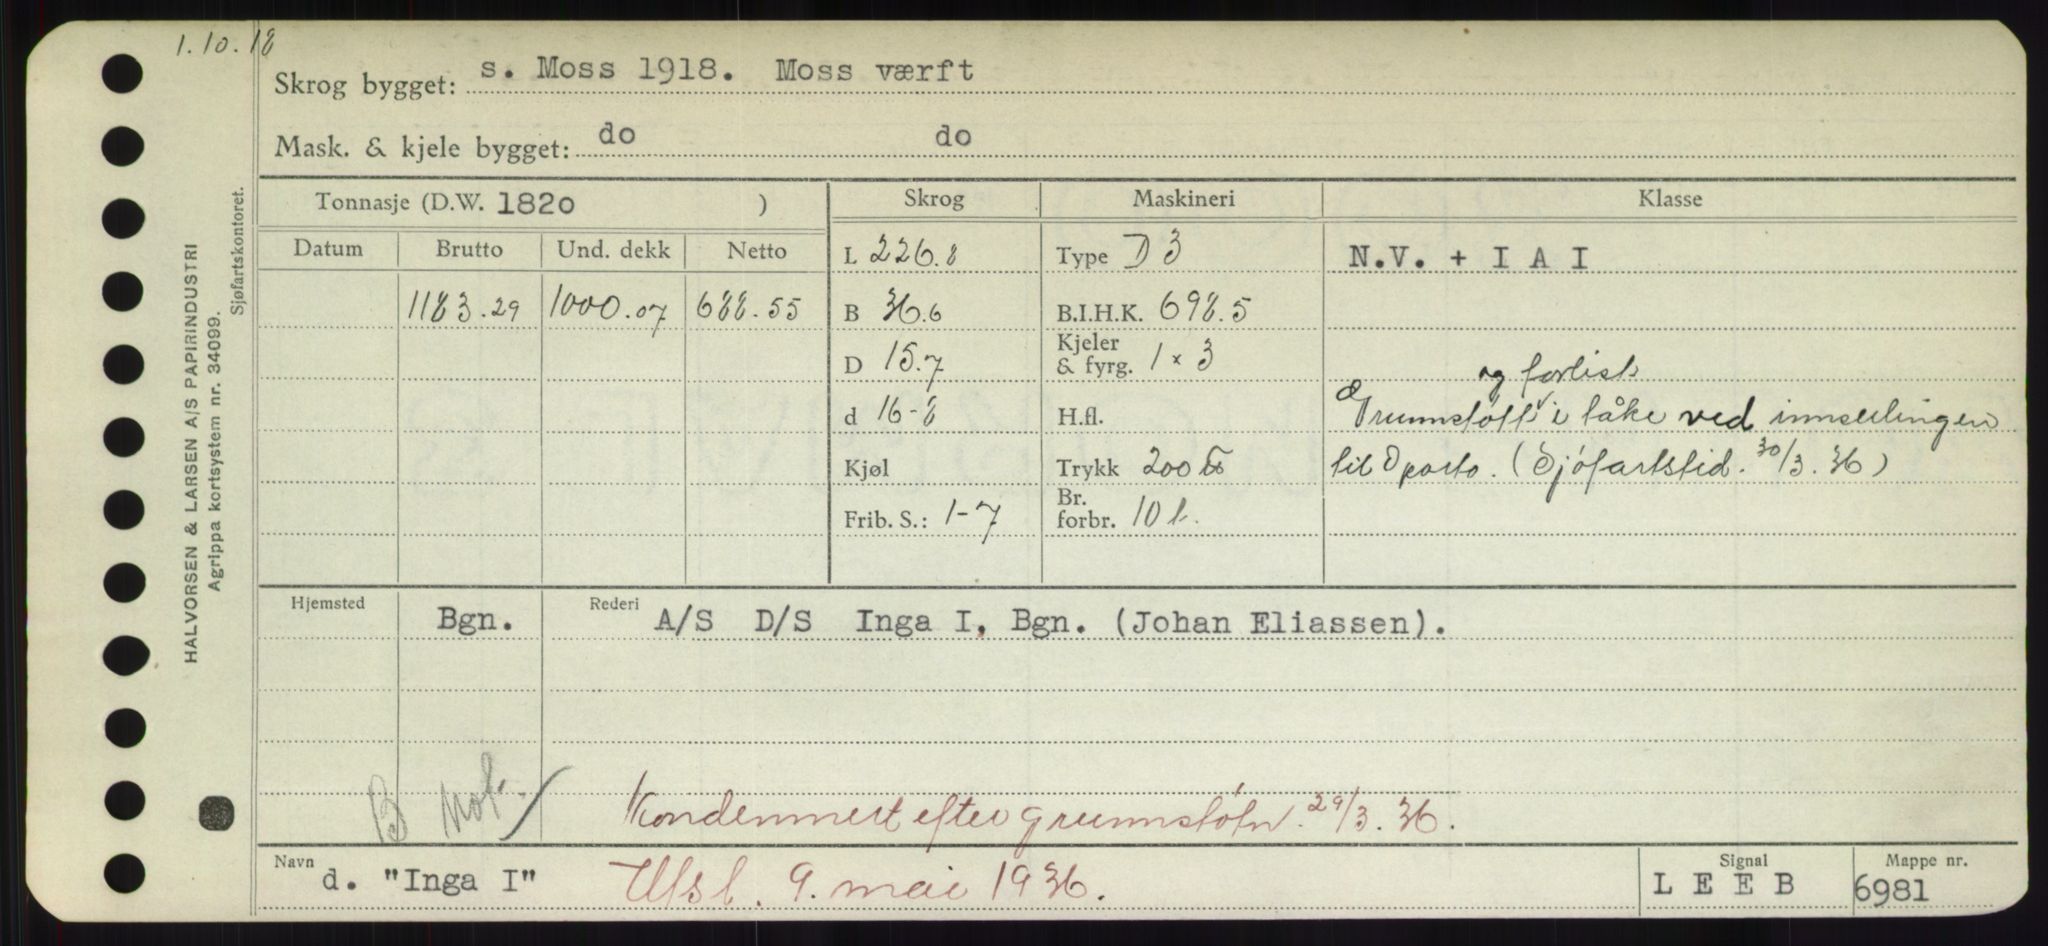 1.10.18
Skrog bygget: s. Moss 1918. Moss værft
Mask. & kjele bygget: do do
Tonnasje (D.W. 1820 ) Skrog Maskineri Klasse
Datum Brutto Und. dekk Netto L 226.8 Type D 3 N.V. + I A I
1183.29 1000.07 688.55 B 36.6 B.I.H.K. 698.5
D 15.7 Kjeler & fyrg. 1 x 3
og forlist
d 16-8 H.fl. Grunnstøtt i tåke ved innseilingen
Kjøl Trykk 200 til Oporto. (Sjøfartstid. 30/3.36)
Frib. S.: 1-7 Br. forbr. 10 t.
Hjemsted Bgn. Rederi A/S D/S Inga I, Bgn. (Johan Eliassen).
B Not.
Kondemnert efter grunnstøtn. 29/3.36.
Navn d. "Inga I" Utsl. 9. mai 1936. Signal L E E B Mappe nr. 6981
HALVORSEN & LARSEN A/S PAPIRINDUSTRI
Agrippa kortsystem nr. 34099.
Sjøfartskontoret.